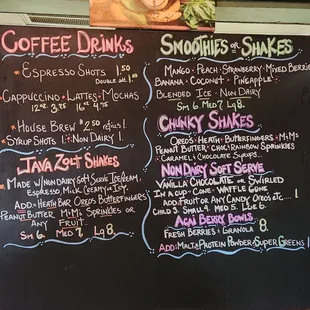 COFFEE DRINKS
ESPRESSO SHOTS 1.50
DOUBLE
CAPPUCCINO • LATTES • MOCHAS
12oz 3.75 16oz 4.75
HOUSE BREW $2.50 refills 1.
SYRUP SHOTS 1. NON DAIRY 1.
JAVA ZOLT SHAKES
MADE W/NON DAIRY SOFT SERVE ICE CREAM,
ESPRESSO, MILK
ADD: HEATH BAR OREOS BUTTERFINGERS
PEANUT BUTTER M&Ms SPRINKLES OR
ANY FRUIT
SM 6. MED 7. LG 8.
SMOOTHIES OR SHAKES
MANGO • PEACH • STRAWBERRY • MIXED BERRIES
BANANA • COCONUT • PINEAPPLE
BLENDED ICE NON DAIRY
SM 6 MED 7 LG 8.
CHUNKY SHAKES
OREOS • HEATH • BUTTERFINGERS • M&Ms
PEANUT BUTTER • CHOC/RAINBOW SPRINKLES
CARAMEL & CHOCOLATE SYRUPS
NON DAIRY SOFT SERVE
VANILLA CHOCOLATE OR SWIRLED
IN A CUP • CONE • WAFFLE CONE
ADD: FRUIT OR ANY CANDY OREOS ETC.... 1
CHILD 3. SMALL 4. MED 5. LGE 6.
ACAI BERRY BOWLS
FRESH BERRIES & GRANOLA 8.
ADD: MALT & PROTEIN POWDER & SUPER GREENS 1